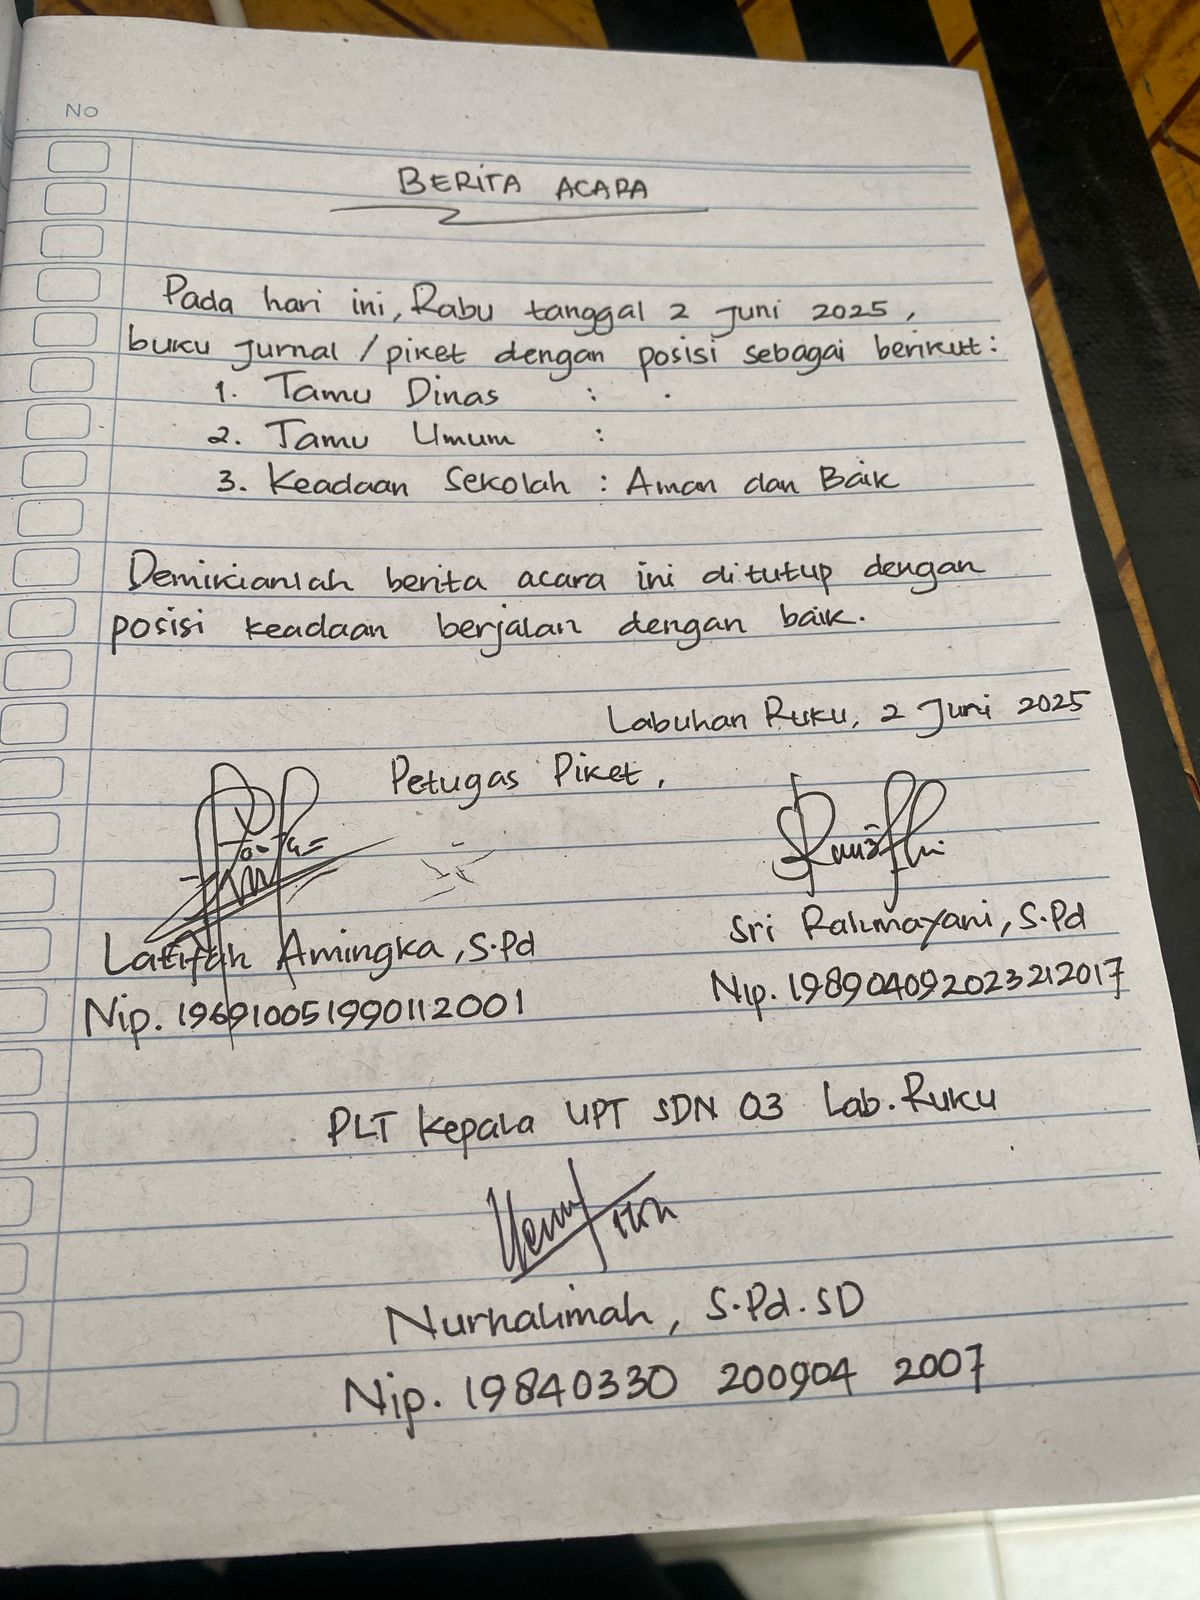 No
BERITA ACARA
Pada hari ini, Rabu tanggal 2 Juni 2025,
buku jurnal / piket dengan posisi sebagai berikut:
1. Tamu Dinas : .
2. Tamu Umum :
3. Keadaan Sekolah : Aman dan Baik
Demikianlah berita acara ini ditutup dengan
posisi keadaan berjalan dengan baik.
Labuhan Ruku, 2 Juni 2025
Petugas Piket,
Latifah Amingka, S.Pd
Sri Rahmayani, S.Pd
Nip. 196910051990112001
Nip. 198904092023212017
PLT Kepala UPT SDN 03 Lab. Ruku
Nurhalimah, S.Pd.SD
Nip. 19840330 200904 2007